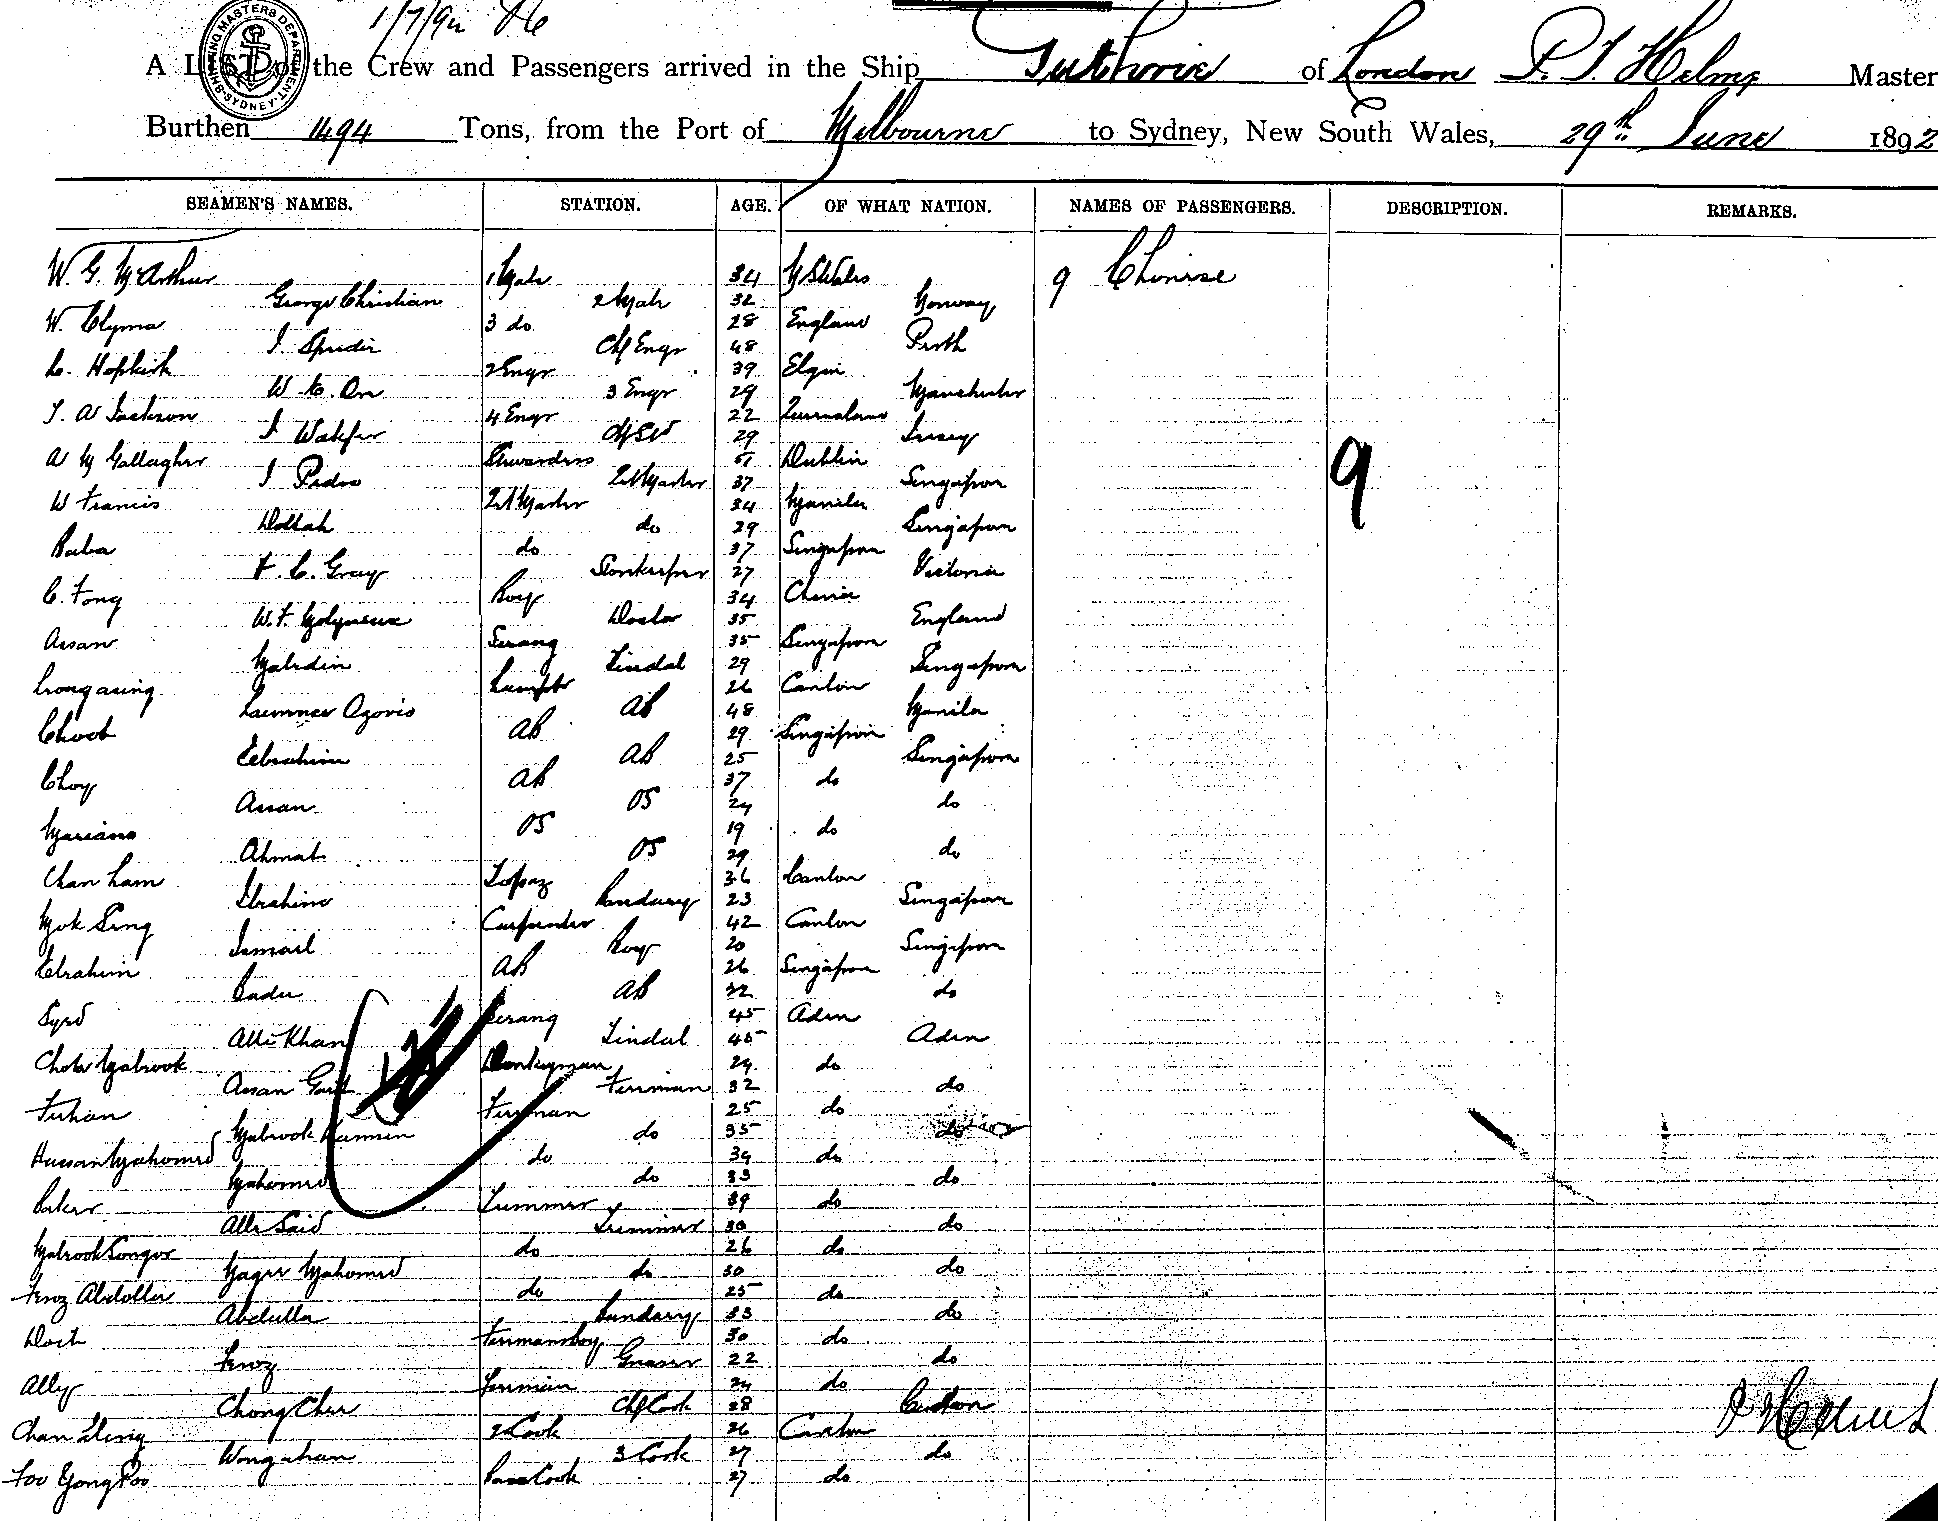 1/7/92
SHIPPING MASTERS DEPARTMENT SYDNEY
A LIST of the Crew and Passengers arrived in the Ship Guthrie of London P. T. Helms Master
Burthen 1494 Tons, from the Port of Melbourne to Sydney, New South Wales, 29th June 1892
SEAMEN'S NAMES. STATION. AGE. OF WHAT NATION. NAMES OF PASSENGERS. DESCRIPTION. REMARKS.
W. G. McArthur 1 Mate 34 N S Wales 9 Chinese
George Christian 2 Mate 32 Norway
W. Clyma 3 do 28 England
J. Speedie Chf Engr 48 Perth
L. Hopkirk 2 Engr 39 Elgin
W. C. Orr 3 Engr 29 Manchester
T. W Jackson 4 Engr 22 Queensland
J Wakfer Chf Std 29 Jersey
A M Gallagher Stewardess 51 Dublin 9
J Pedro Qr Master 37 Singapore
W Francis Qr Master 34 Manila
Dollah do 29 Singapore
Baba do 37 Singapore
F. C. Gray Storekeeper 27 Victoria
C. Fong Boy 34 China
W. F. Molyneux Doctor 35 England
Assan Serang 35 Singapore
Mabdin Tindal 29 Singapore
Lamptr 26 Canton
AB 48 Manila
Choob AB 29 Singapore
Eebrahim AB 25 Singapore
Choy AB 37 do
Assan OS 24 do
Mariano OS 19 do
Ahmat OS 29 do
Chan Lam 36 Canton
Ibrahim Bandary 23 Singapore
Mok Sing Carpenter 42 Canton
Ismail Boy 20 Singapore
Ebrahim AB 26 Singapore
Badu AB 32 do
Syed Serang 45 Aden
Alli Khan Tindal 45 Aden
Chota Mabrook Donkeyman 29 do
Assan Fireman 32 do
Farhan Fireman 25 do
Mabrook do 35 do
Hassan Mahomed do 39 do
Mahomed do 33 do
Baker Trimmer 39 do
Alli Said Trimmer 30 do
Mabrook Songor do 26 do
Nager Mahomed do 30 do
Feroz Abdolla do 25 do
Abdulla Bandary 33 do
Dost Firemans Boy 30 do
Feroz Greaser 22 do
Ally Fireman 24 do
Chong Chee Chf Cook 28 Canton
Chan 2 Cook 26 Canton
Wongahan 3 Cook 27 do
Foo Yong Poo Cook 27 do
P T Helms